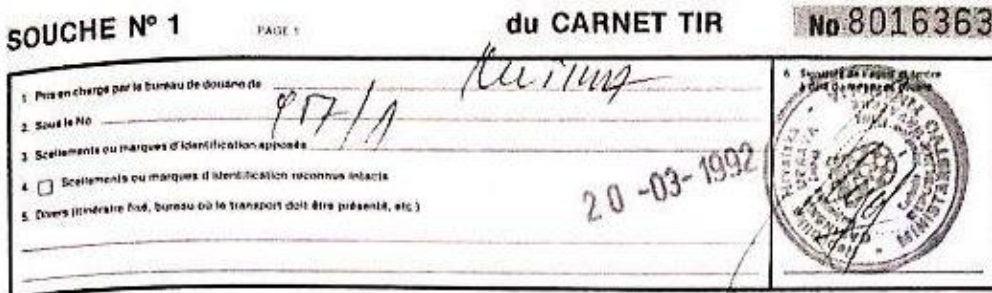 SOUCHE N° 1 PAGE 1 du CARNET TIR No 8016363
1. Pris en charge par le bureau de douane de
2. Sous le No
3. Scellements ou marques d'identification apposés
4. Scellements ou marques d'identification reconnus intacts
5. Divers (itinéraire fixé, bureau où le transport doit être présenté, etc.)
20-03-1992
6. Signature de l'agent et timbre
à date du bureau de douane